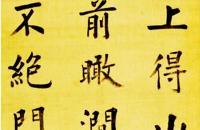 上得山
前瞰澗
不絕門